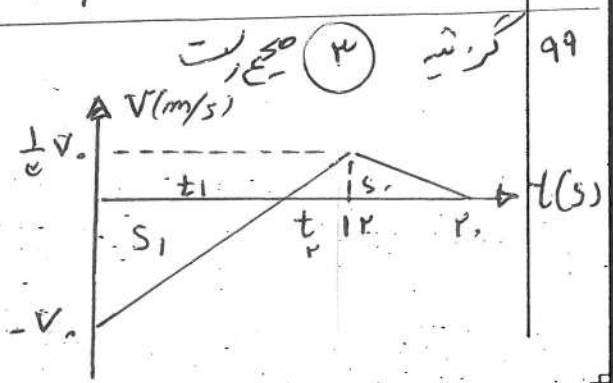 ۹۹ گزینه ۳ صحیح است
V(m/s)
½ V₀
t₁ S₁ t(s)
S₁ t₂ ۱۲ ۲۰
-V₀